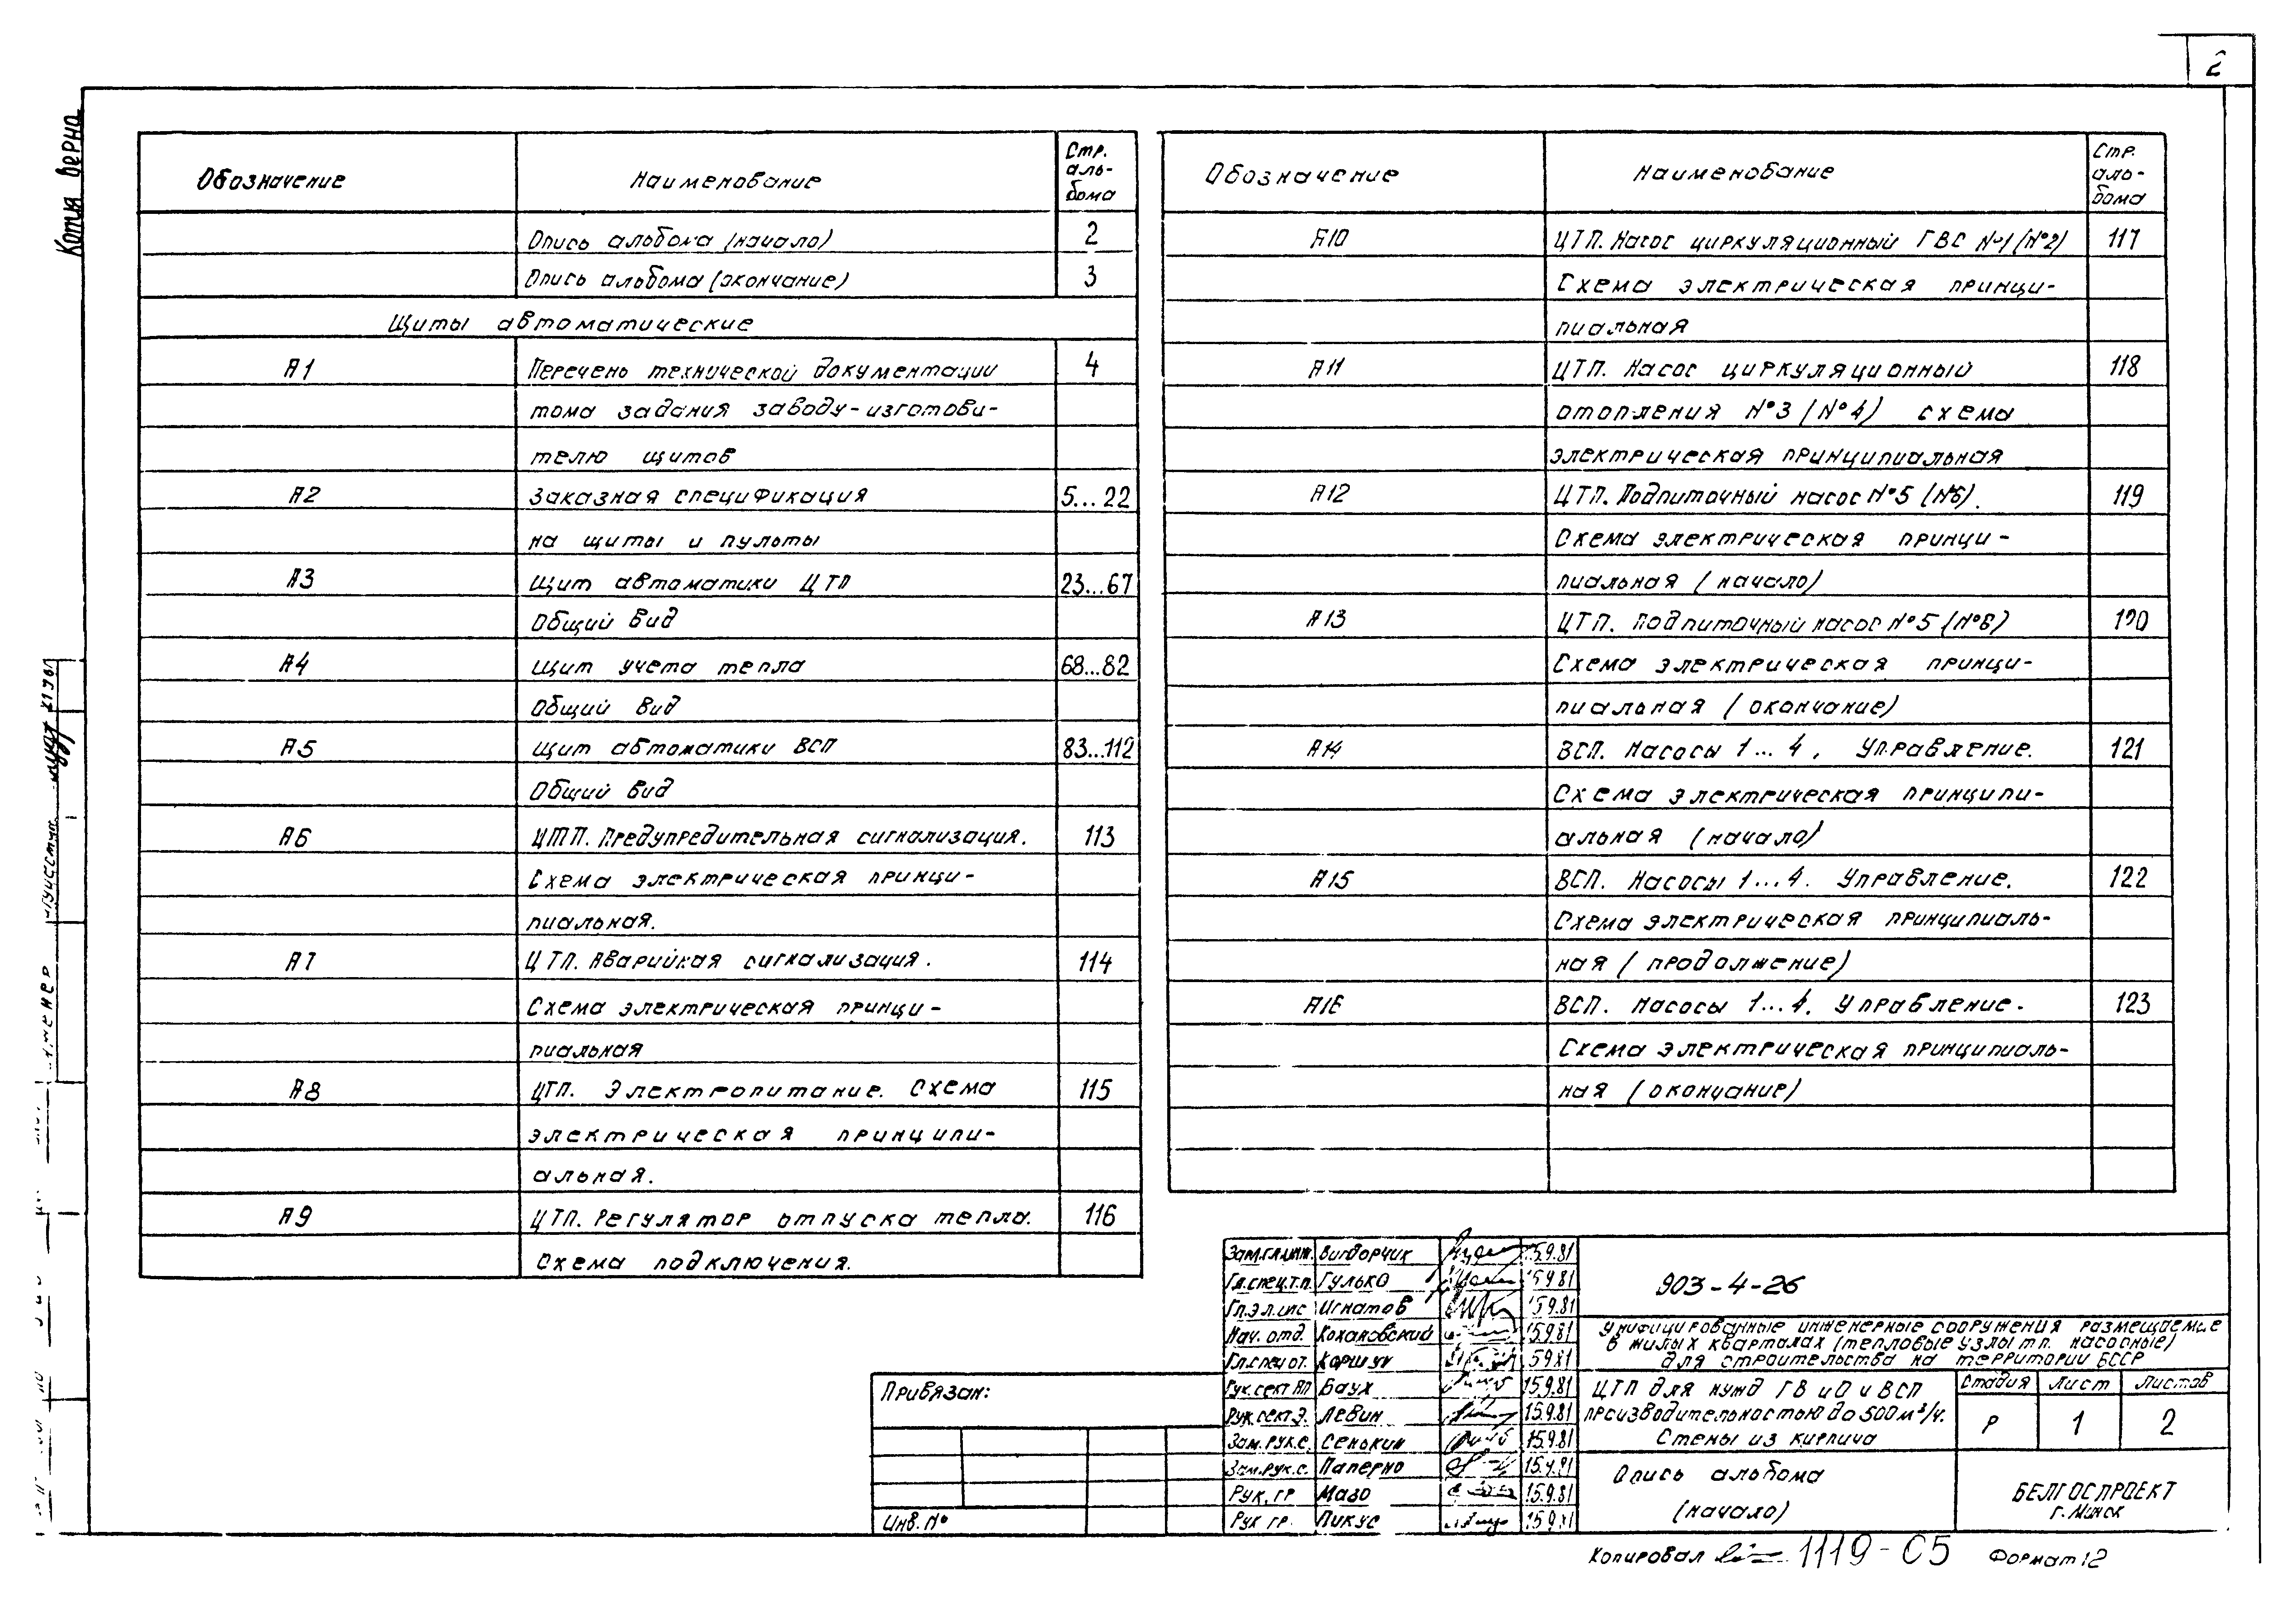 2
Копия верна
Обозначение Наименование Стр. аль- бома
Опись альбома (начало) 2
Опись альбома (окончание) 3
Щиты автоматические
А1 Перечень технической документации 4
тома задания заводу-изготови-
телю щитов
А2 Заказная спецификация 5...22
на щиты и пульты
А3 Щит автоматики ЦТП 23...67
Общий вид
А4 Щит учета тепла 68...82
Общий вид
А5 Щит автоматики ВСП 83...112
Общий вид
А6 ЦТП. Предупредительная сигнализация. 113
Схема электрическая принци-
пиальная.
А7 ЦТП. Аварийная сигнализация. 114
Схема электрическая принци-
пиальная
А8 ЦТП. Электропитание. Схема 115
электрическая принципи-
альная.
А9 ЦТП. Регулятор отпуска тепла. 116
Схема подключения.
Обозначение Наименование Стр. аль- бома
А10 ЦТП. Насос циркуляционный ГВС №1 (№2) 117
Схема электрическая принци-
пиальная
А11 ЦТП. Насос циркуляционный 118
отопления №3 (№4) схема
электрическая принципиальная
А12 ЦТП. Подпиточный насос №5 (№6). 119
Схема электрическая принци-
пиальная (начало)
А13 ЦТП. Подпиточный насос №5 (№6) 120
Схема электрическая принци-
пиальная (окончание)
А14 ВСП. Насосы 1...4, Управление. 121
Схема электрическая принципи-
альная (начало)
А15 ВСП. Насосы 1...4. Управление. 122
Схема электрическая принципиаль-
ная (продолжение)
А16 ВСП. Насосы 1...4. Управление. 123
Схема электрическая принципиаль-
ная (окончание)
Зам.гл.инж. Вигдорчик 15.9.81
Гл.спец.т.п. Гулько 15.9.81
Гл.эл. Игнатов 15.9.81
Нач. отд. Кохановский 15.9.81
Гл.спец от. Коршун 15.9.81
Рук.сект АП Баух 15.9.81
Рук.сект.э. Левин 15.9.81
Зам.рук.с. Сенькин 15.9.81
Зам.рук.с. Паперно 15.9.81
Рук. гр. Мазо 15.9.81
Рук гр. Пикус 15.9.81
903-4-26
Унифицированные инженерные сооружения размещаемые
в жилых кварталах (тепловые узлы тп. насосные)
для строительства на территории БССР
ЦТП для нужд ГВ и О и ВСП
производительностью до 500 м³/ч.
Стены из кирпича
Стадия Лист Листов
Р 1 2
Опись альбома
(начало)
БЕЛГОСПРОЕКТ
г. Минск
Привязан:
Инв. №
Копировал 1119-05 Формат 12